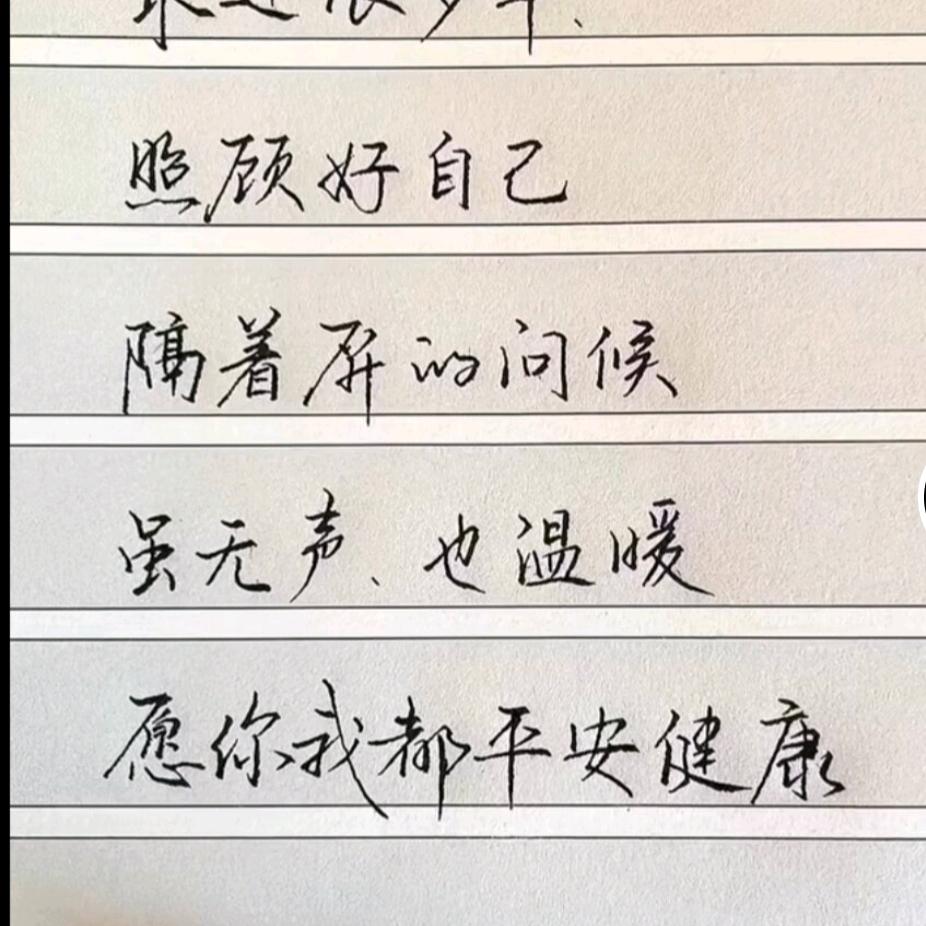 照顾好自己
隔着屏的问候
虽无声、也温暖
愿你我都平安健康